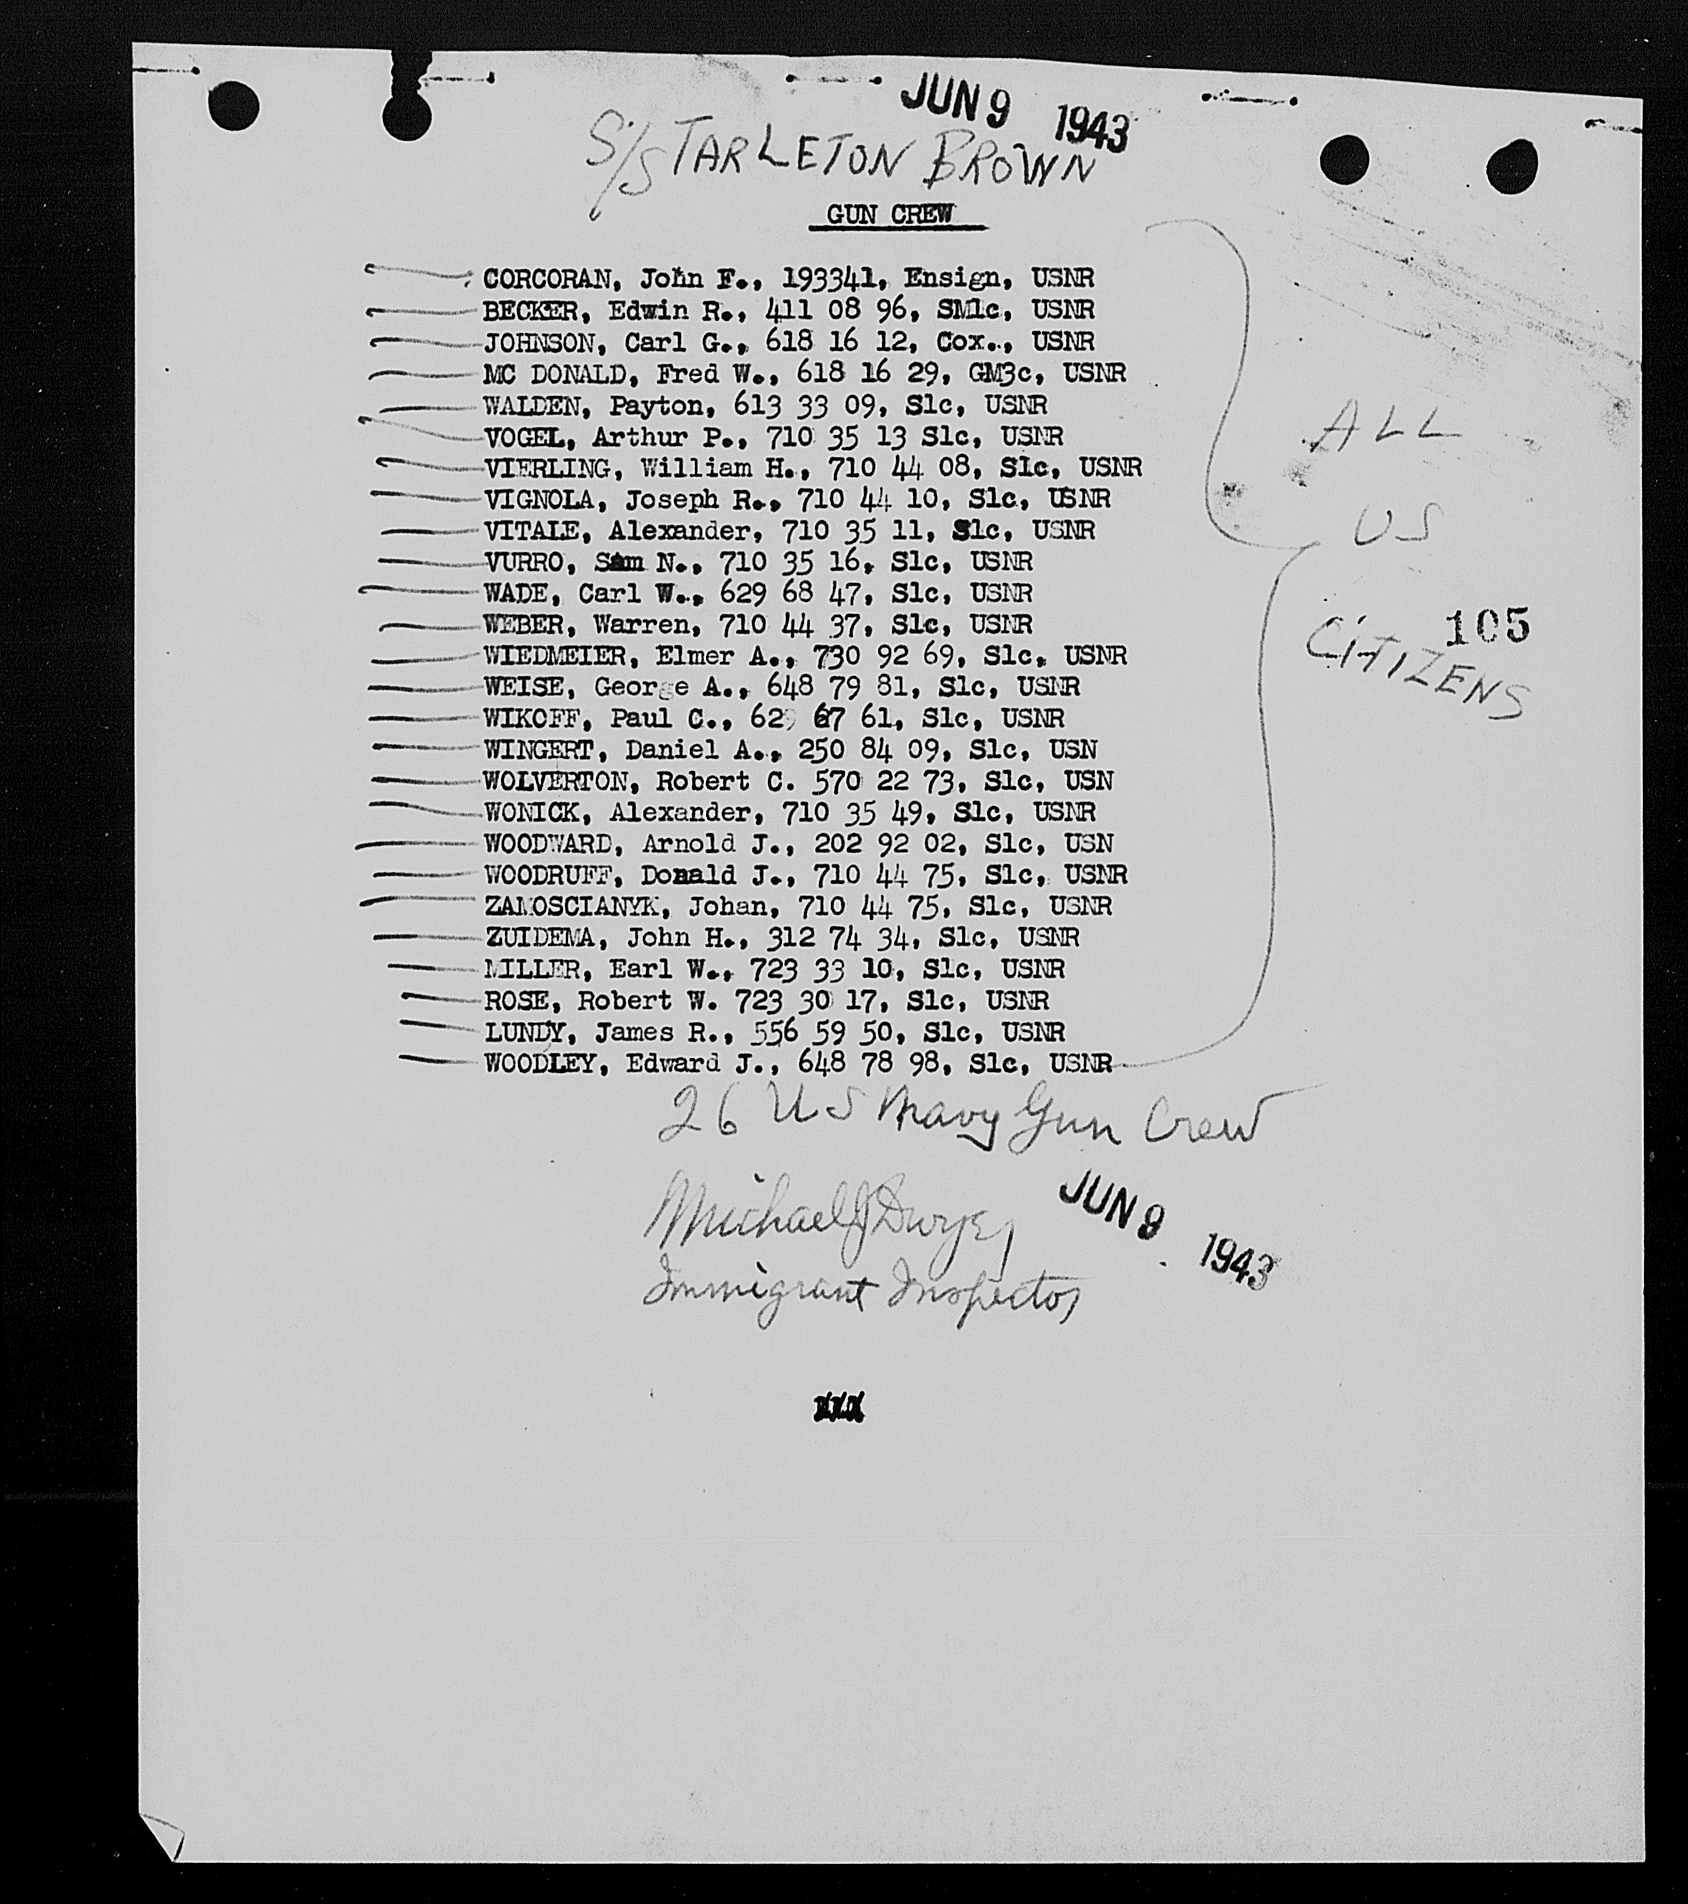 JUN 9 1943
S/S TARLETON BROWN
GUN CREW
CORCORAN, John F., 193341, Ensign, USNR
BECKER, Edwin R., 411 08 96, SM1c, USNR
JOHNSON, Carl G., 618 16 12, Cox., USNR
MC DONALD, Fred W., 618 16 29, GM3c, USNR
WALDEN, Payton, 613 33 09, S1c, USNR
VOGEL, Arthur P., 710 35 13 S1c, USNR
VIERLING, William H., 710 44 08, S1c, USNR
VIGNOLA, Joseph R., 710 44 10, S1c, USNR
VITALE, Alexander, 710 35 11, S1c, USNR
VURRO, Sam N., 710 35 16, S1c, USNR
WADE, Carl W., 629 68 47, S1c, USNR
WEBER, Warren, 710 44 37, S1c, USNR
WIEDMEIER, Elmer A., 730 92 69, S1c, USNR
WEISE, George A., 648 79 81, S1c, USNR
WIKOFF, Paul C., 629 67 61, S1c, USNR
WINGERT, Daniel A., 250 84 09, S1c, USN
WOLVERTON, Robert C. 570 22 73, S1c, USN
WONICK, Alexander, 710 35 49, S1c, USNR
WOODWARD, Arnold J., 202 92 02, S1c, USN
WOODRUFF, Donald J., 710 44 75, S1c, USNR
ZAMOSCIANYK, Johan, 710 44 75, S1c, USNR
ZUIDEMA, John H., 312 74 34, S1c, USNR
MILLER, Earl W., 723 33 10, S1c, USNR
ROSE, Robert W. 723 30 17, S1c, USNR
LUNDY, James R., 556 59 50, S1c, USNR
WOODLEY, Edward J., 648 78 98, S1c, USNR
ALL
US
CITIZENS
105
26 US Navy Gun Crew
Michael J Dwyer
Immigrant Inspector
JUN 9 1943